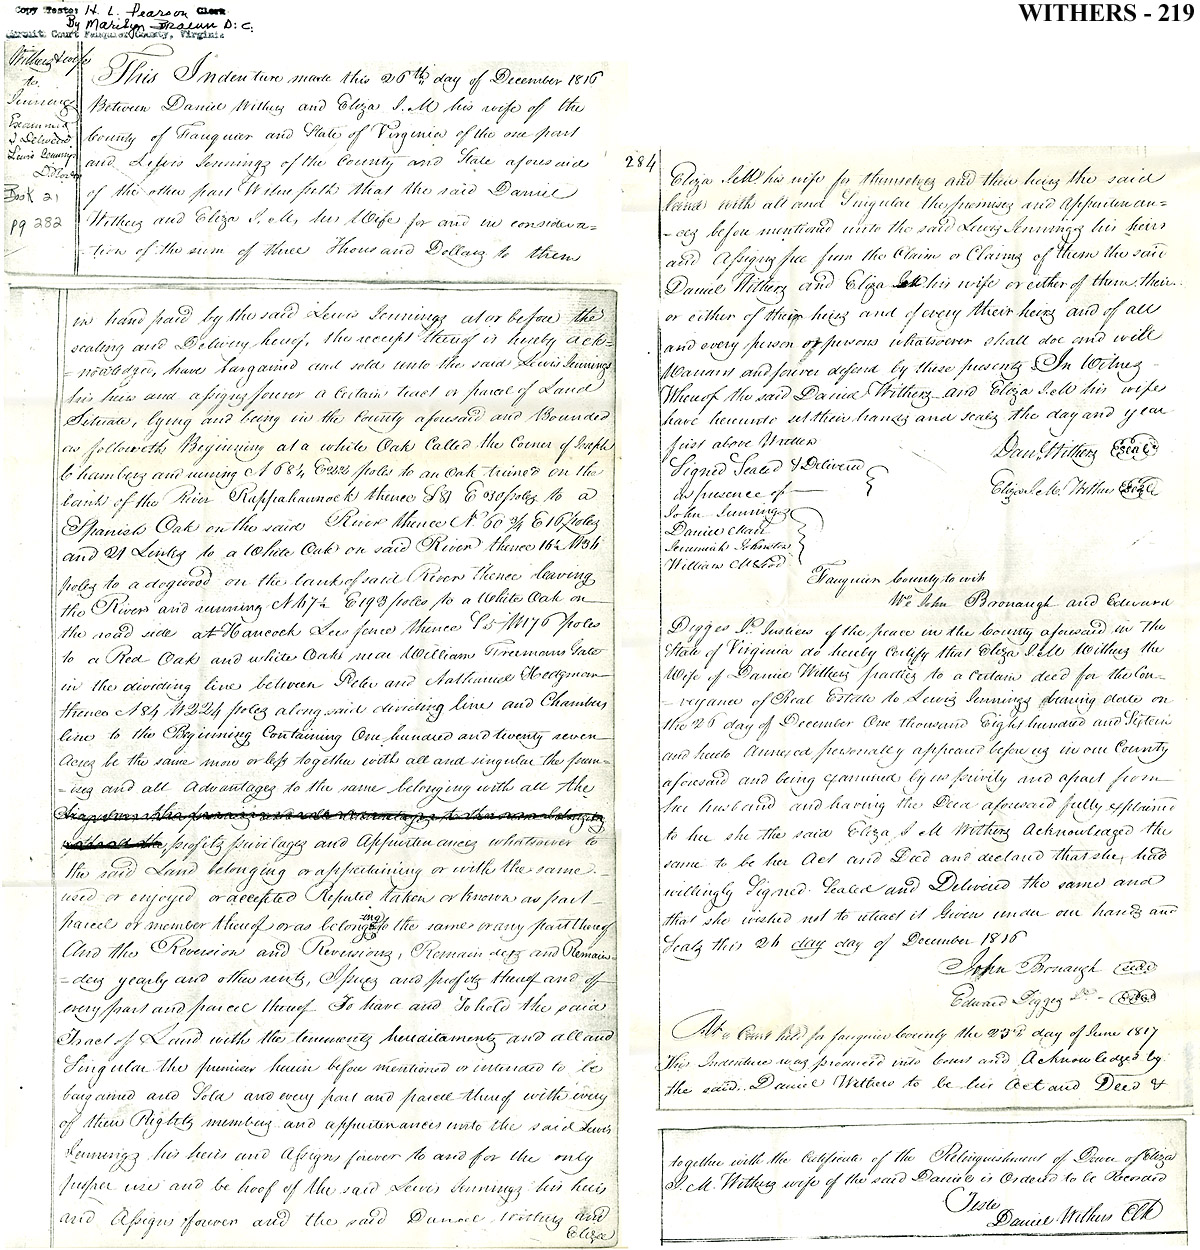 Copy Teste: H. L. Pearson Clerk
By Marilyn D. C.
Circuit Court Fauquier County, Virginia
WITHERS - 219
Withers & wife
to
Jennings
Examined
& Delivered
Lewis Jennings
Book 21
pg 282
This Indenture made this 26th day of December 1816
Between Daniel Withers and Eliza I. M his wife of the
County of Fauquier and State of Virginia of the one part
and Lewis Jennings of the County and State aforesaid
of the other part Witnesseth that the said Daniel
Withers and Eliza I. M, his Wife for and in considera-
-tion of the sum of three Thousand Dollars to them
in hand paid by the said Lewis Jennings at or before the
sealing and Delivery hereof, the receipt thereof is hereby ack-
-nowledged, have bargained and sold unto the said Lewis Jennings
his heirs and assigns forever a Certain tract or parcel of Land
Situate, lying and being in the County aforesaid and Bounded
as followeth Beginning at a white Oak Called the Corner of Joseph
Chambers and runing N 68¼ E poles to an Oak on the
bank of the River Rappahannock thence S81 E 30 poles to a
Spanish Oak on the said River thence N 60 ¾ E 16 poles
and 21 Links to a White Oak on said River thence
poles to a dogwood on the bank of said River thence leaving
the River and running N 47½ E 193 poles to a White Oak on
the road side at Hancock Lees fence thence poles
to a Red Oak and white Oak near William Freemans Gate
in the dividing line between Peter and Nathaniel Hodgman
thence N84 W224 poles along said dividing line and Chambers
line to the Beginning Containing One hundred and twenty seven
Acres be the same more or less together with all and singular the prem-
-ises and all Advantages to the same belonging with all the
profits privilages and Appurtenances whatsoever to
the said Land belonging or appertaining or with the same
used or enjoyed or accepted Reputed taken or known as part
parcel or member thereof or as belonging to the same or any part thereof
And the Reversion and Reversions, Remainders and Remain-
-ders yearly and other rents, Issues and profits thereof and of
every part and parcel thereof To have and To hold the said
Tract of Land with the tenements hereditaments and all and
Singular the premises herein before mentioned or intended to be
bargained and Sold and every part and parcel thereof with every
of their Rights members and appurtenances unto the said Lewis
Jennings his heirs and Assigns forever to and for the only
proper use and be hoof of the said Lewis Jennings his heirs
and Assigns forever and the said Daniel Withers and
Eliza
284
Eliza I. M his wife for themselves and their heirs the said
land with all and Singular the premises and Appurtenan-
-ces before mentioned unto the said Lewis Jennings his heirs
and Assigns free from the Claim or Claims of them the said
Daniel Withers and Eliza I M his wife or either of them their
or either of their heirs and of every their heirs and of all
and every person or persons whatsoever shall doe and will
Warrant and forever defend by these presents In Witness
Whereof the said Daniel Withers and Eliza I. M his wife
have hereunto set their hands and seals the day and year
first above Written
Dan. Withers Seal
Signed Sealed & Delivered
in presence of
Eliza I. M. Withers Seal
John Jennings
Daniel Ward
Jeremiah Johnston
William McLeod
Fauquier County to wit
We John Bronaugh and Edward
Digges Jr. Justices of the peace in the County aforesaid in the
State of Virginia do hereby Certify that Eliza I. M Withers the
Wife of Daniel Withers parties to a Certain deed for the Con-
-veyance of Real Estate to Lewis Jennings bearing date on
the 26 day of December One thousand Eight hundred and Sixteen
and hereto Annexed personally appeared before us in our County
aforesaid and being examined by us privily and apart from
her husband and having the Deed aforesaid fully explained
to her she the said Eliza I M Withers Acknowledged the
same to be her Act and Deed and declared that she had
willingly Signed Sealed and Delivered the same and
that she wished not to retract it Given under our hands and
Seals this 26 day day of December 1816
John Bronaugh Seal
Edward Digges Jr Seal
At a Court held for fauquier County the 23rd day of June 1817
This Indenture was produced into Court and Acknowledged by
the said Daniel Withers to be his Act and Deed &
together with the Certificate of the Relinquishment of Dower of Eliza
I. M. Withers wife of the said Daniel is Ordered to be Recorded
Teste
Daniel Withers Clk